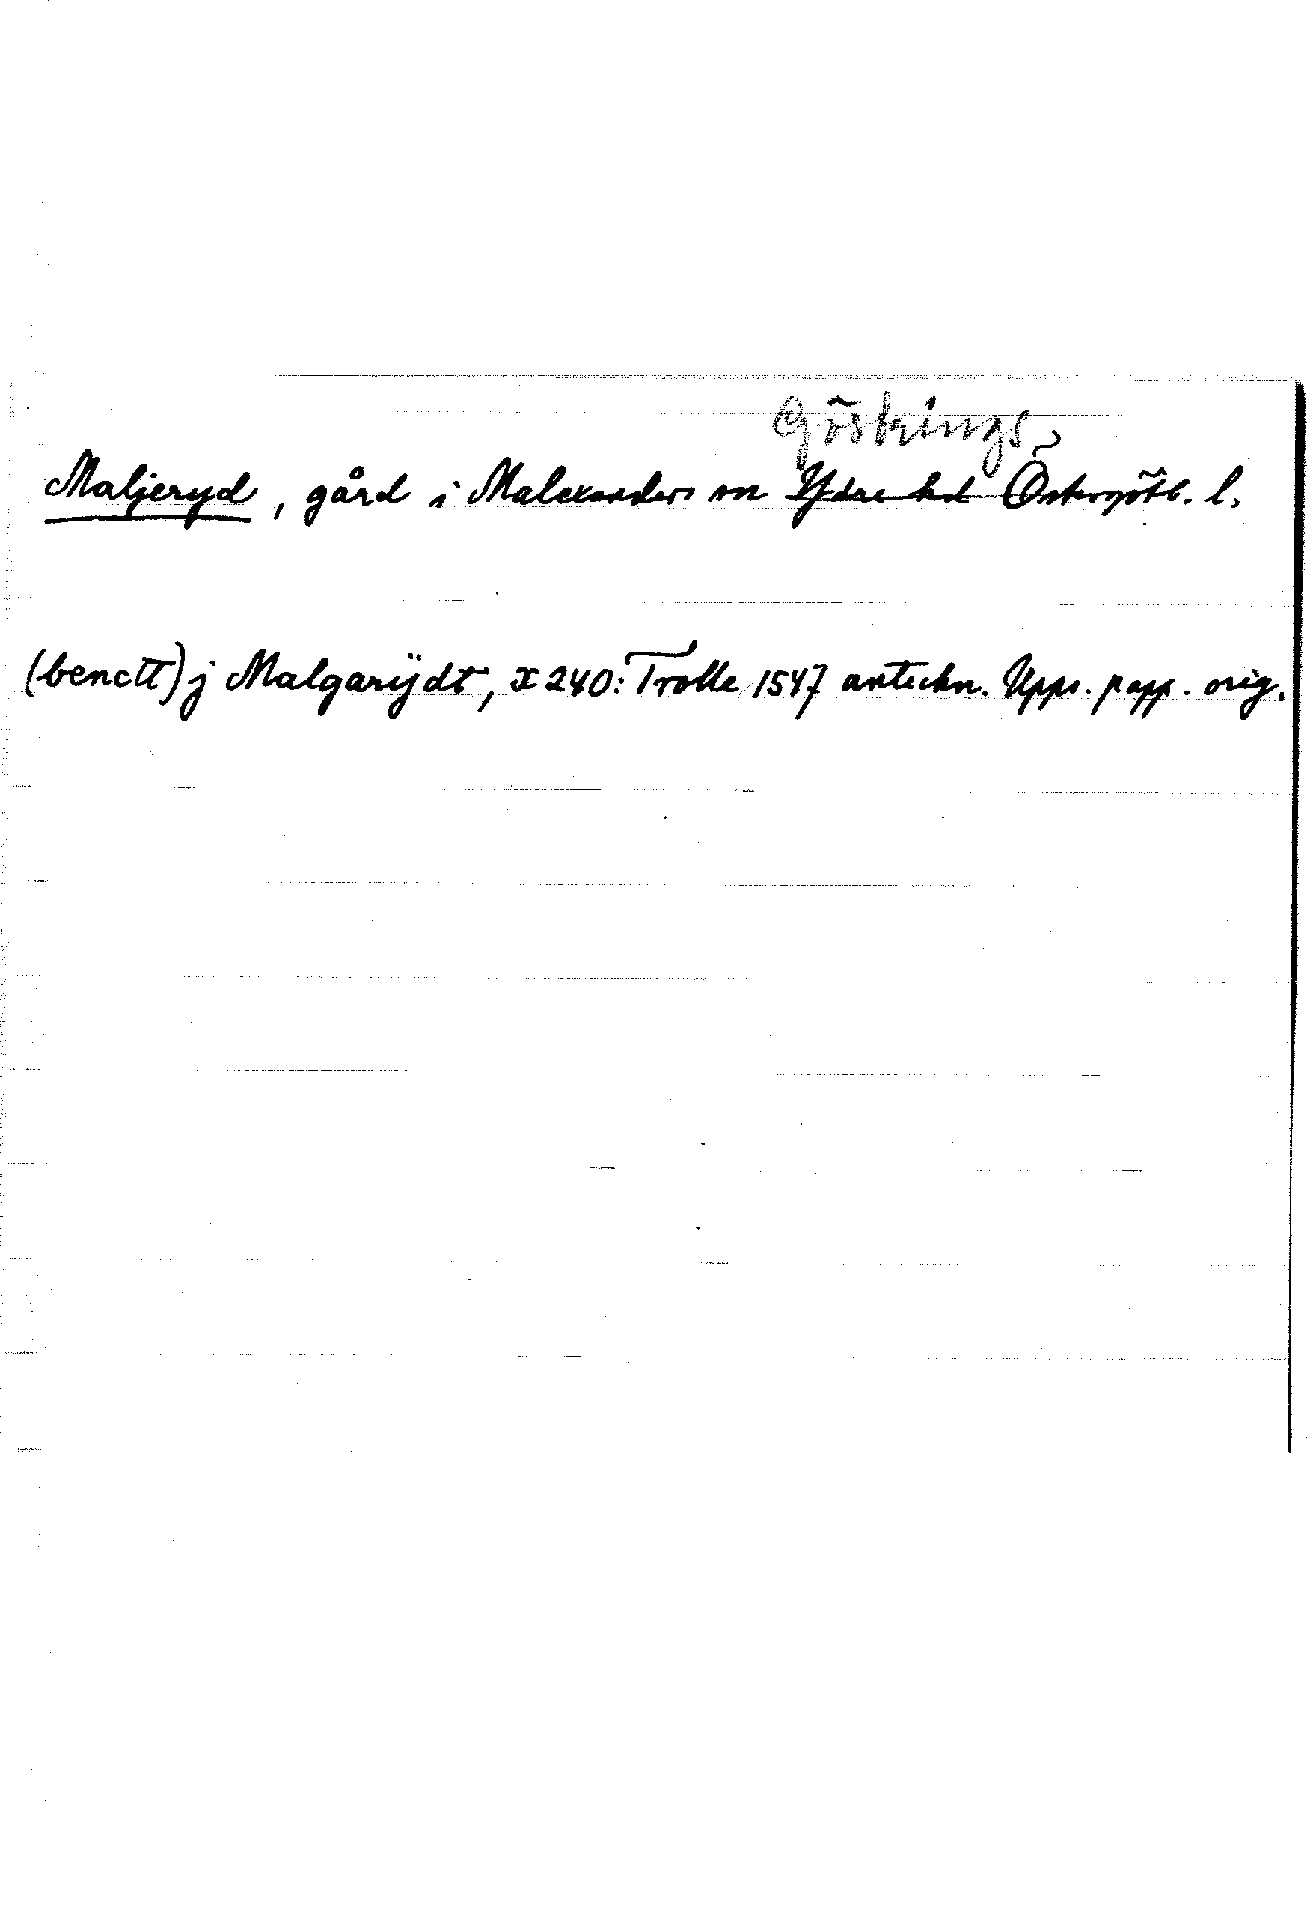 Göstrings
Maljeryd, gård i Malexanders sn Ydre hd Östergötl. l.
(benctt) j Malgarÿdt, X 240: Trolle 1547 anteckn. Upps. papp. orig.